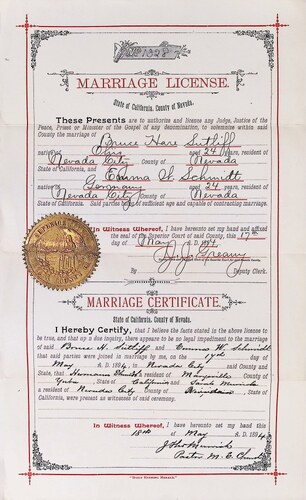 No. 1028
MARRIAGE LICENSE.
State of California, County of Nevada.
These Presents are to authorize and license any Judge, Justice of the
Peace, Priest or Minister of the Gospel of any denomination, to solemnize within said
County the marriage of Bruce Hare Sutliff
native of Ohio aged 24 years, resident of
Nevada City County of Nevada
State of California, and Emma W. Schmidt
native of Germany aged 24 years, resident of
Nevada City County of Nevada
State of California. Said parties being of sufficient age and capable of contracting marriage.
In Witness Whereof, I have hereunto set my hand and affixed
the seal of the Superior Court of said County, this 17th
day of May A. D. 1894
J. J. Greany
By Deputy Clerk.
MARRIAGE CERTIFICATE.
State of California, County of Nevada.
I Hereby Certify, that I believe the facts stated in the above license
to be true, and that upon due inquiry, there appears to be no legal impediment to the marriage
of said Bruce H. Sutliff and Emma W. Schmidt
that said parties were joined in marriage by me, on the 17th day of
May A. D. 1894, in Nevada City said County and
State, that resident of Marysville
Yuba, State of California and Sarah
a resident of Nevada City State of
California, were present as witnesses of said ceremony.
In Witness Whereof, I have hereunto set my hand this
18th May A. D. 1894
Pastor M. E. Church